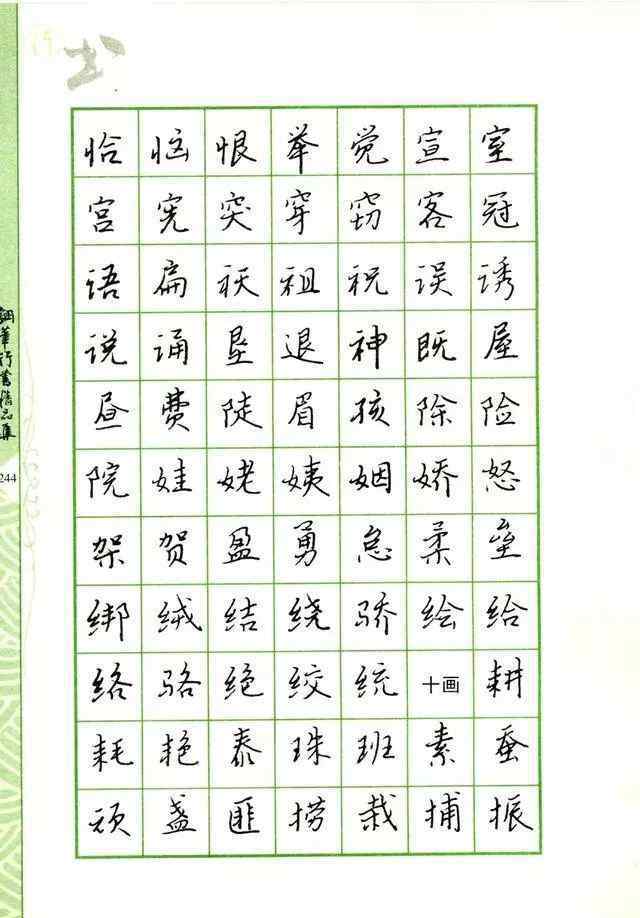 恰恼恨举觉宣室
宫宪突穿窃客冠
语扁袄祖祝误诱
说诵垦退神既屋
昼费陡眉孩除险
院娃姥姨姻娇怒
架贺盈勇怠柔垒
绑绒结绕骄绘给
络骆绝绞统十画耕
耗艳泰珠班素蚕
顽盏匪捞栽捕振
行书精品集
244